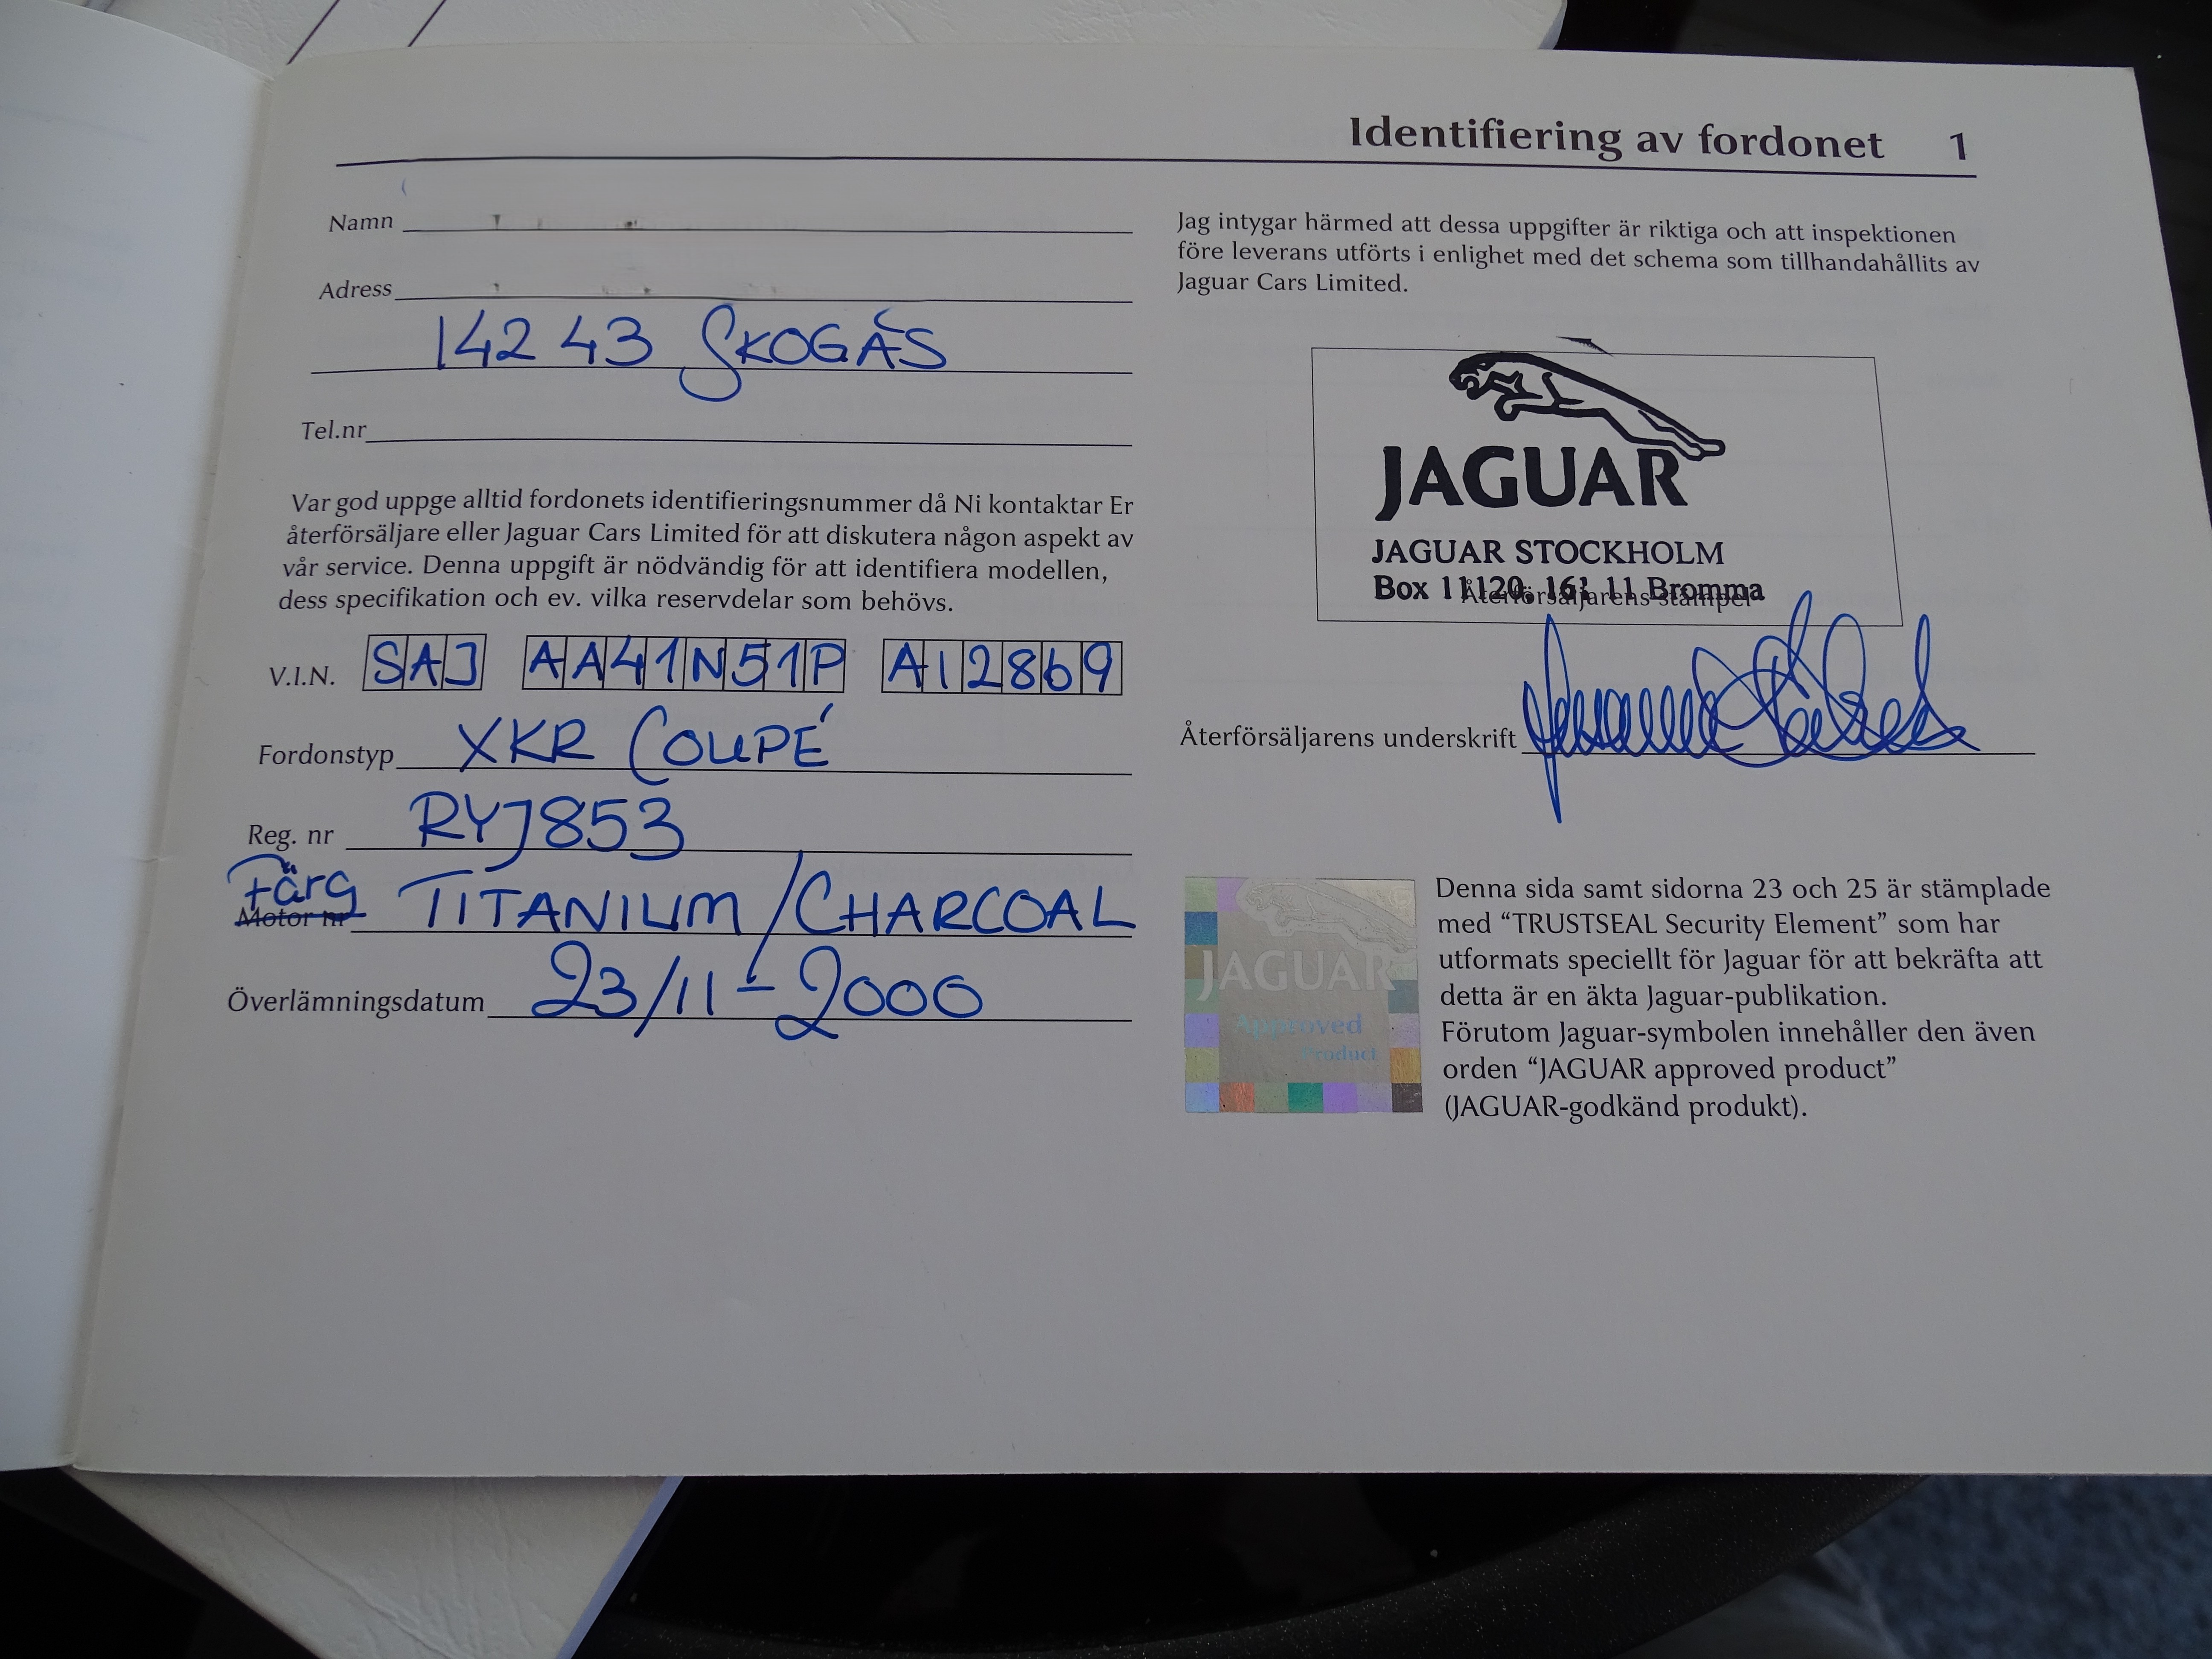 Identifiering av fordonet 1
Namn
Adress
142 43 SKOGÅS
Tel.nr
Var god uppge alltid fordonets identifieringsnummer då Ni kontaktar Er
återförsäljare eller Jaguar Cars Limited för att diskutera någon aspekt av
vår service. Denna uppgift är nödvändig för att identifiera modellen,
dess specifikation och ev. vilka reservdelar som behövs.
V.I.N. SAJ AA41N51P A12869
Fordonstyp XKR COUPÉ
Reg. nr RYJ853
Färg
Motor nr TITANIUM / CHARCOAL
Överlämningsdatum 23/11 - 2000
Jag intygar härmed att dessa uppgifter är riktiga och att inspektionen
före leverans utförts i enlighet med det schema som tillhandahållits av
Jaguar Cars Limited.
JAGUAR
JAGUAR STOCKHOLM
Box 11120, 161 11 Bromma
Återförsäljarens stämpel
Återförsäljarens underskrift
JAGUAR
Approved
Product
Denna sida samt sidorna 23 och 25 är stämplade
med “TRUSTSEAL Security Element” som har
utformats speciellt för Jaguar för att bekräfta att
detta är en äkta Jaguar-publikation.
Förutom Jaguar-symbolen innehåller den även
orden “JAGUAR approved product”
(JAGUAR-godkänd produkt).